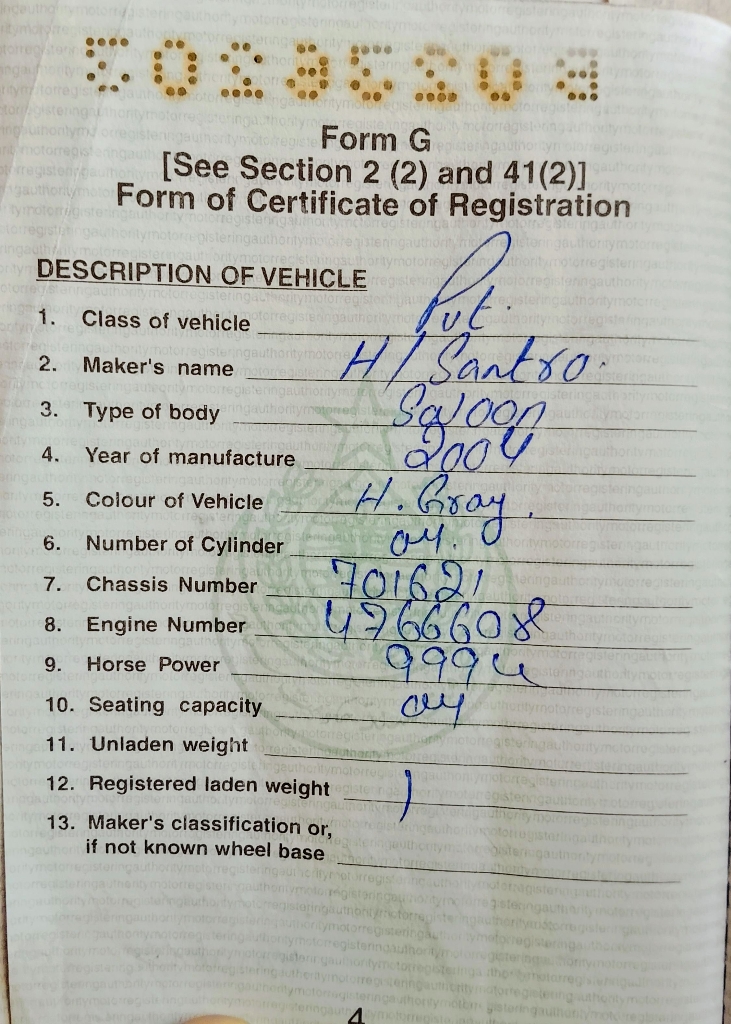 Form G
[See Section 2 (2) and 41(2)]
Form of Certificate of Registration
DESCRIPTION OF VEHICLE
1. Class of vehicle Pvt.
2. Maker's name H/Santro.
3. Type of body Saloon
4. Year of manufacture 2004
5. Colour of Vehicle H. Gray.
6. Number of Cylinder 04.
7. Chassis Number 701621
8. Engine Number 4766608
9. Horse Power
10. Seating capacity 04
11. Unladen weight
12. Registered laden weight
13. Maker's classification or,
if not known wheel base
4